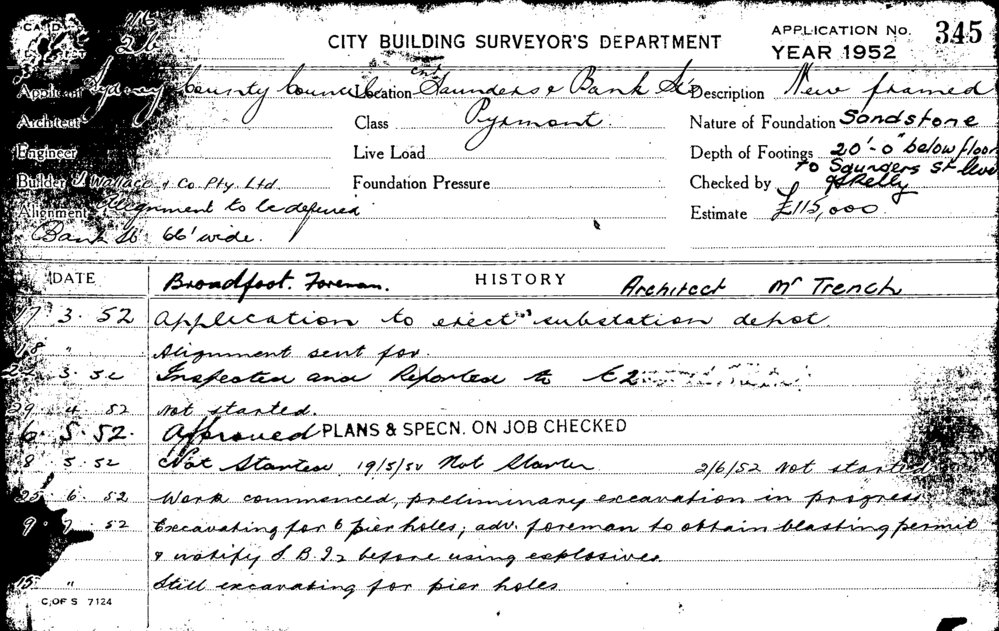 CARD
116
26
CITY BUILDING SURVEYOR'S DEPARTMENT
APPLICATION No. 345
YEAR 1952
Applicant Sydney County Council Location cnr Saunders & Bank Sts Description New framed
Architect Class Pyrmont. Nature of Foundation Sandstone
Engineer Live Load Depth of Footings 20'-0" below floor
to Saunders St level
Builder J Wallace & Co. Pty. Ltd. Foundation Pressure Checked by Skelly
Alignment Alignment to be defined Estimate £115,000
Bank St 66' wide.
DATE Broadfoot. Foreman. HISTORY Architect Mr Trench
17 3. 52 Application to erect substation depot.
18 " Alignment sent for.
3. 52 Inspected and Reported to
29 4 52 Not started.
6. 5. 52. Approved PLANS & SPECN. ON JOB CHECKED
8 5. 52 Not Started 19/5/52 Not Started 2/6/52 Not started
25 6. 52 Work commenced, preliminary excavation in progress
9. 7 52 Excavating for 6 pier holes; adv. foreman to obtain blasting permit
& notify S.B.I. before using explosives.
15 " Still excavating for pier holes
C. OF S 7124